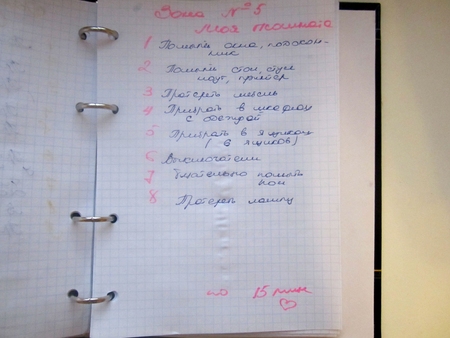 Зона № 5
Моя комната
1 Помыть окна, подокон-
ник
2 Помыть стол, стул
ноут, принтер
3 Протереть мебель
4 Прибрать в шкафах
с одеждой
5 Прибрать в ящиках
( 6 ящиков)
6
7 Тщательно помыть
пол
8 Протереть лампу
по 15 мин